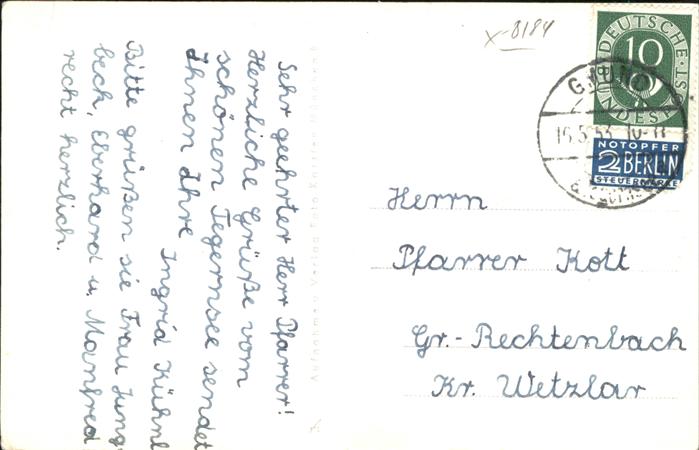 x-8184
Sehr geehrter Herr Pfarrer!
Herzliche Grüße vom
schönen Tegernsee sendet
Ihnen Ihre
Ingrid Kühnl
Bitte grüßen sie Frau Jung-
beck, Eberhard u. Manfred
recht herzlich.
Aufnahme u. Verlag Foto
DEUTSCHE
10
BUNDESPOST
NOTOPFER
2 BERLIN
STEUERMARKE
GMUND
16.5.53. 10-11
Herrn
Pfarrer Kott
Gr.-Rechtenbach
Kr. Wetzlar